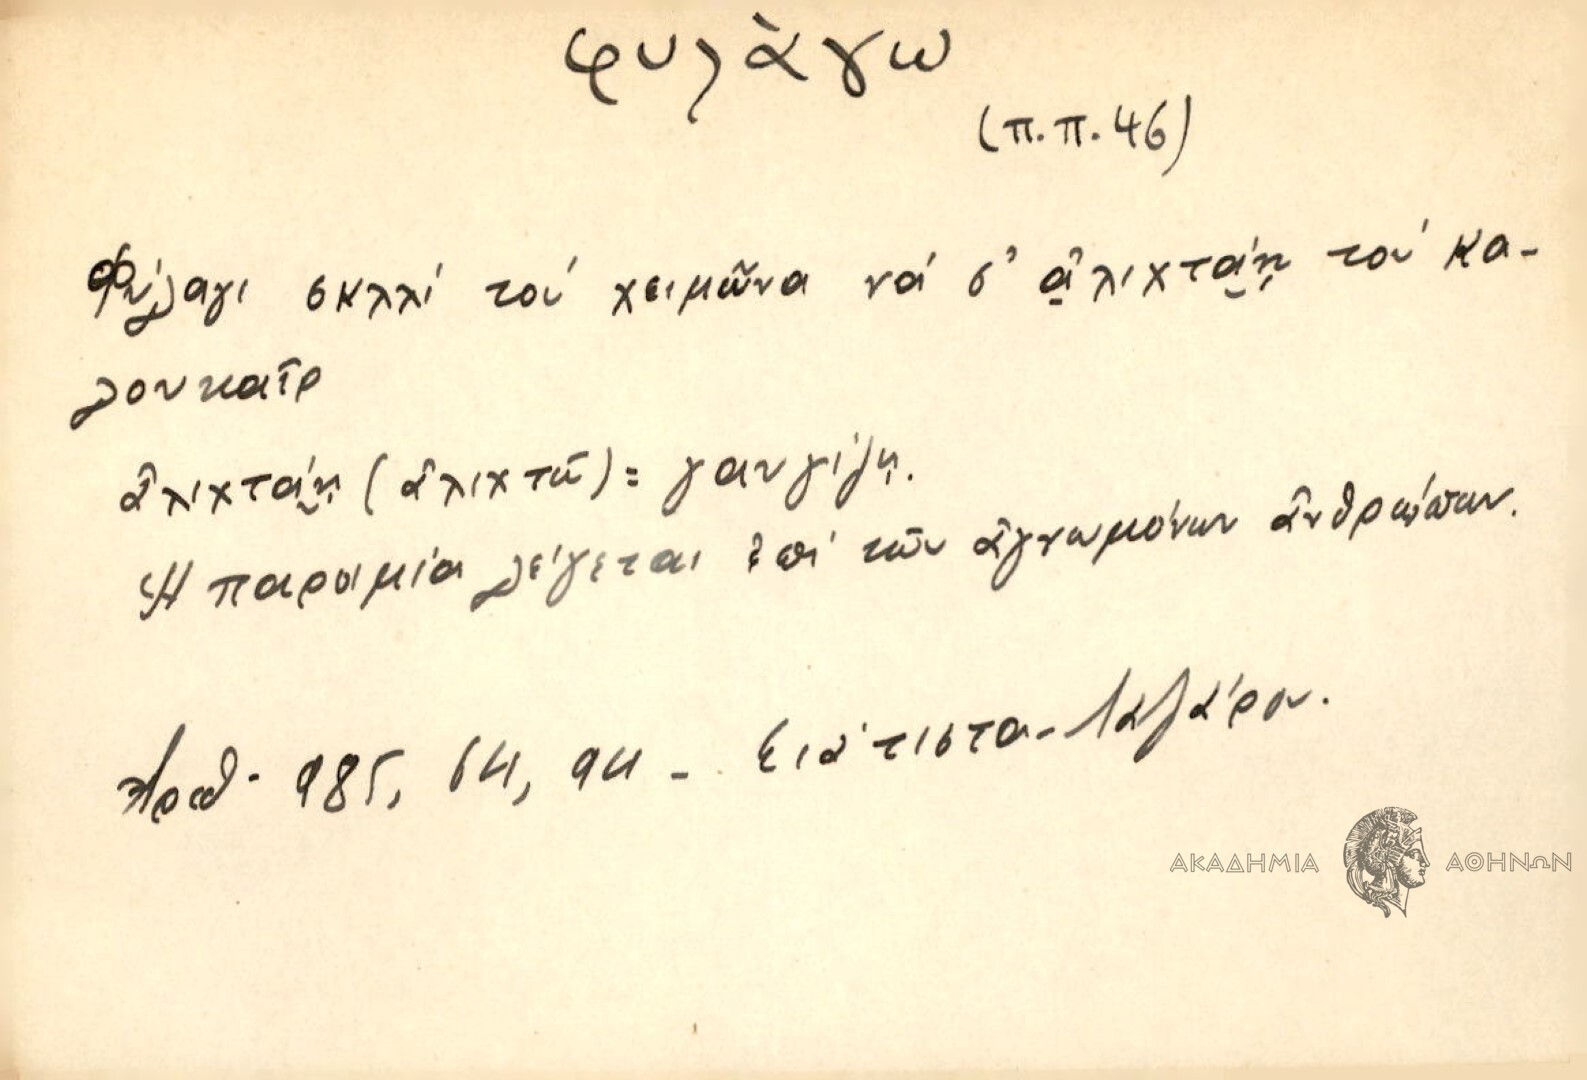 φυλὰγω
(π.π. 46)
Φύλαγι σκλλί τού χειμῶνα νά σ' ἀλιχτάῃ τού κα-
λουκαῖρ
ἀλιχτάῃ (ἀλιχτῶ) = γαυγίζῃ.
Ἡ παροιμία λέγεται ἐπί τῶν ἀγνωμόνων ἀνθρώπων.
985, 64, 94 - Σιάτιστα - Λαζάρου.
ΑΚΑΔΗΜΙΑ ΑΘΗΝΩΝ